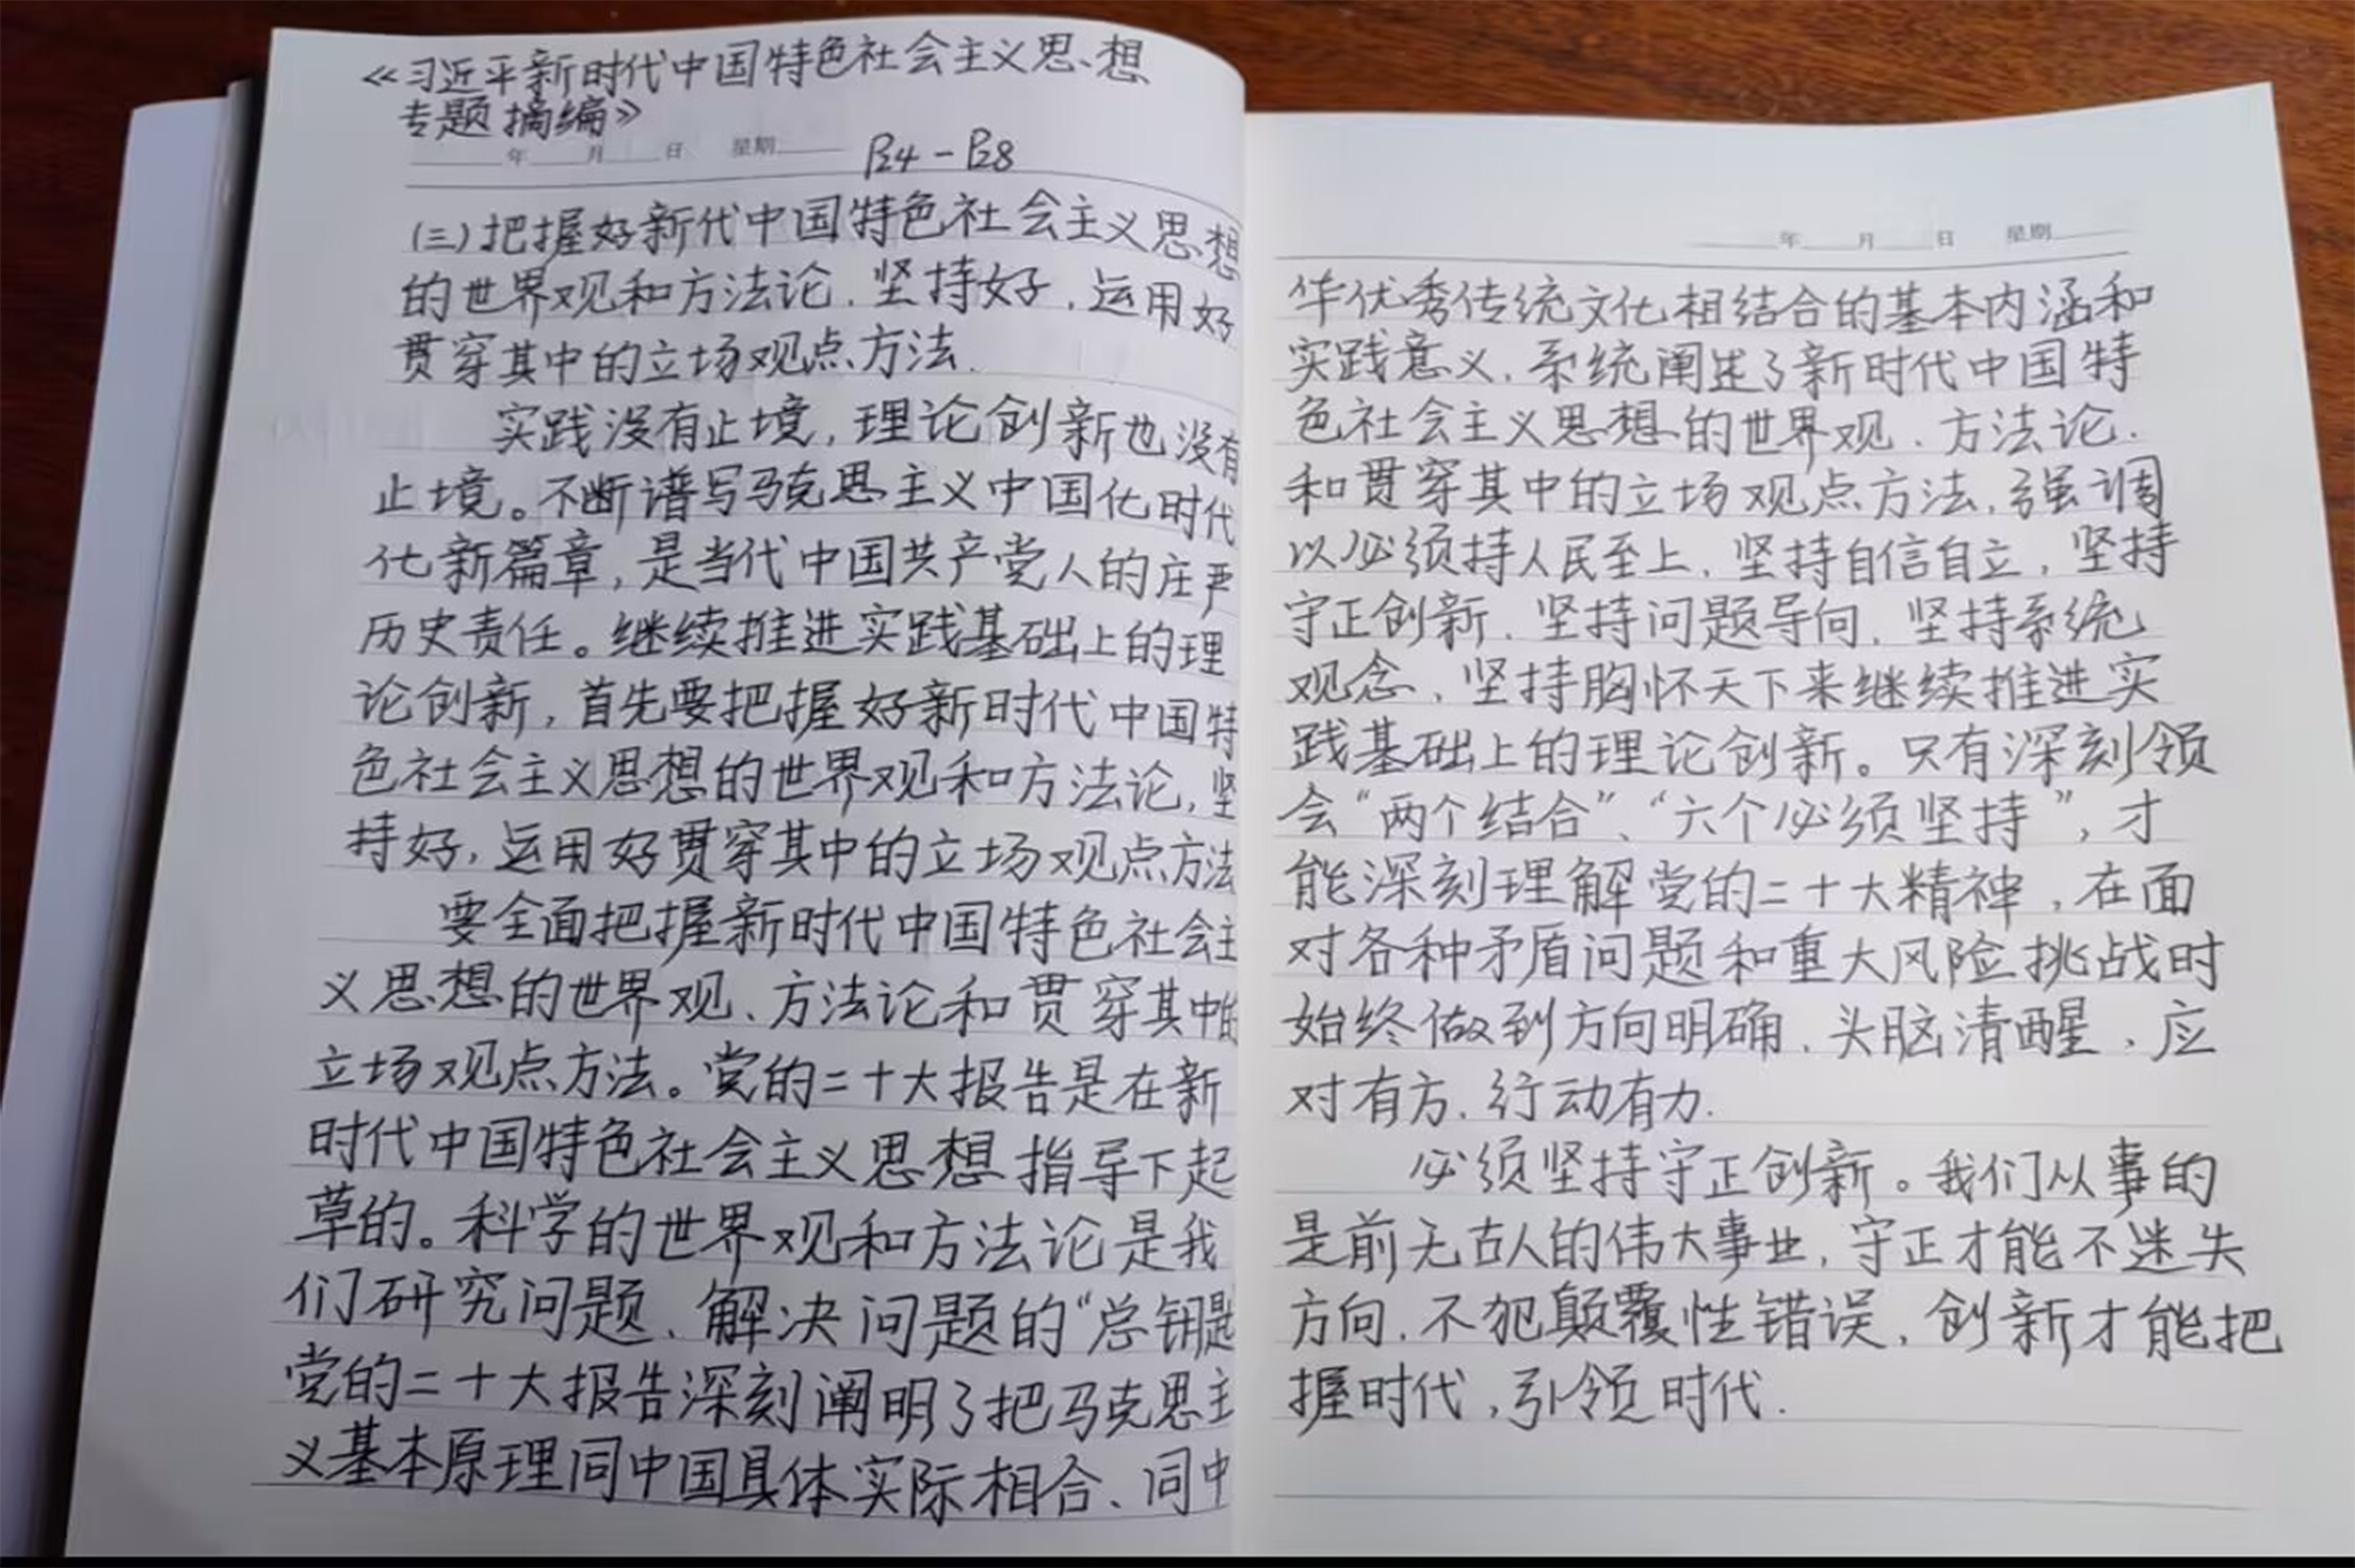 《习近平新时代中国特色社会主义思想
专题摘编》
年 月 日 星期 P24-P28
(三)把握好新代中国特色社会主义思想
的世界观和方法论、坚持好、运用好
贯穿其中的立场观点方法.
实践没有止境,理论创新也没有
止境。不断谱写马克思主义中国化时代
化新篇章,是当代中国共产党人的庄严
历史责任。继续推进实践基础上的理
论创新,首先要把握好新时代中国特
色社会主义思想的世界观和方法论,坚
持好,运用好贯穿其中的立场观点方法
要全面把握新时代中国特色社会主
义思想的世界观、方法论和贯穿其中的
立场观点方法。党的二十大报告是在新
时代中国特色社会主义思想指导下起
草的。科学的世界观和方法论是我
们研究问题、解决问题的“总钥匙
党的二十大报告深刻阐明了把马克思主
义基本原理同中国具体实际相合、同中
年 月 日 星期
华优秀传统文化相结合的基本内涵和
实践意义、系统阐述了新时代中国特
色社会主义思想的世界观、方法论.
和贯穿其中的立场观点方法,强调
以必须持人民至上、坚持自信自立,坚持
守正创新、坚持问题导向、坚持系统
观念、坚持胸怀天下来继续推进实
践基础上的理论创新。只有深刻领
会“两个结合”、“六个必须坚持”,才
能深刻理解党的二十大精神,在面
对各种矛盾问题和重大风险挑战时
始终做到方向明确、头脑清醒、应
对有方、行动有力.
必须坚持守正创新。我们从事的
是前无古人的伟大事业,守正才能不迷失
方向、不犯颠覆性错误,创新才能把
握时代,引领时代.